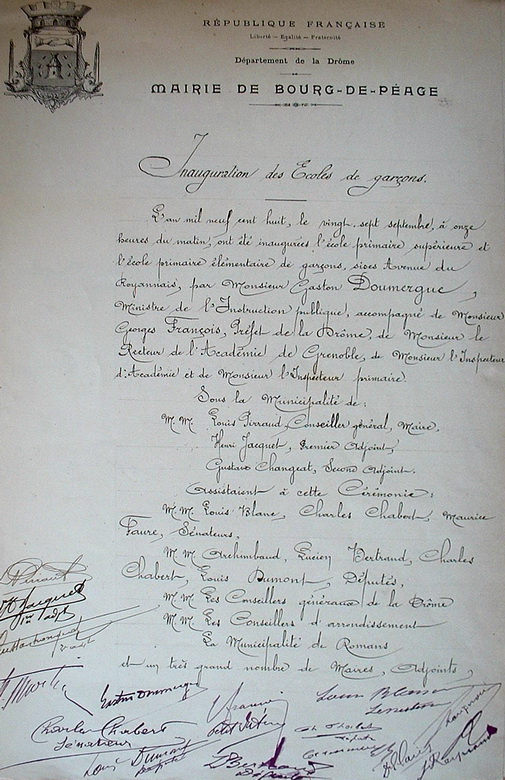 RÉPUBLIQUE FRANÇAISE
Liberté — Egalité — Fraternité
Département de la Drôme
MAIRIE DE BOURG-DE-PÉAGE
Inauguration des Ecoles de garçons.
L'an mil neuf cent huit, le vingt-sept septembre, à onze
heures du matin, ont été inaugurées l'école primaire supérieure et
l'école primaire élémentaire de garçons, sises Avenue du
Royannais, par Monsieur Gaston Doumergue,
Ministre de l'Instruction publique, accompagné de Monsieur
Georges François, Préfet de la Drôme, de Monsieur le
Recteur de l'Académie de Grenoble, de Monsieur l'Inspecteur
d'Académie et de Monsieur l'Inspecteur primaire
Sous la Municipalité de:
M.M. Louis Pirraud, Conseiller général, Maire,
Henri Jacquet, Premier Adjoint,
Gustave Changeat, Second Adjoint.
Assistaient à cette Cérémonie:
M.M. Louis Blanc, Charles Chabert, Maurice
Faure, Sénateurs,
M.M. Archimbaud, Lucien Bertrand, Charles
Chabert, Louis Dumont, Députés,
M.M. Les Conseillers généraux de la Drôme
M.M. Les Conseillers d'arrondissement
La Municipalité de Romans
et un très grand nombre de Maires, Adjoints,
Jacquet
1er adjt
Gaston Doumergue
Louis Blanc
Charles Chabert
Sénateur
Louis Dumont
Député
L Bertrand
Député